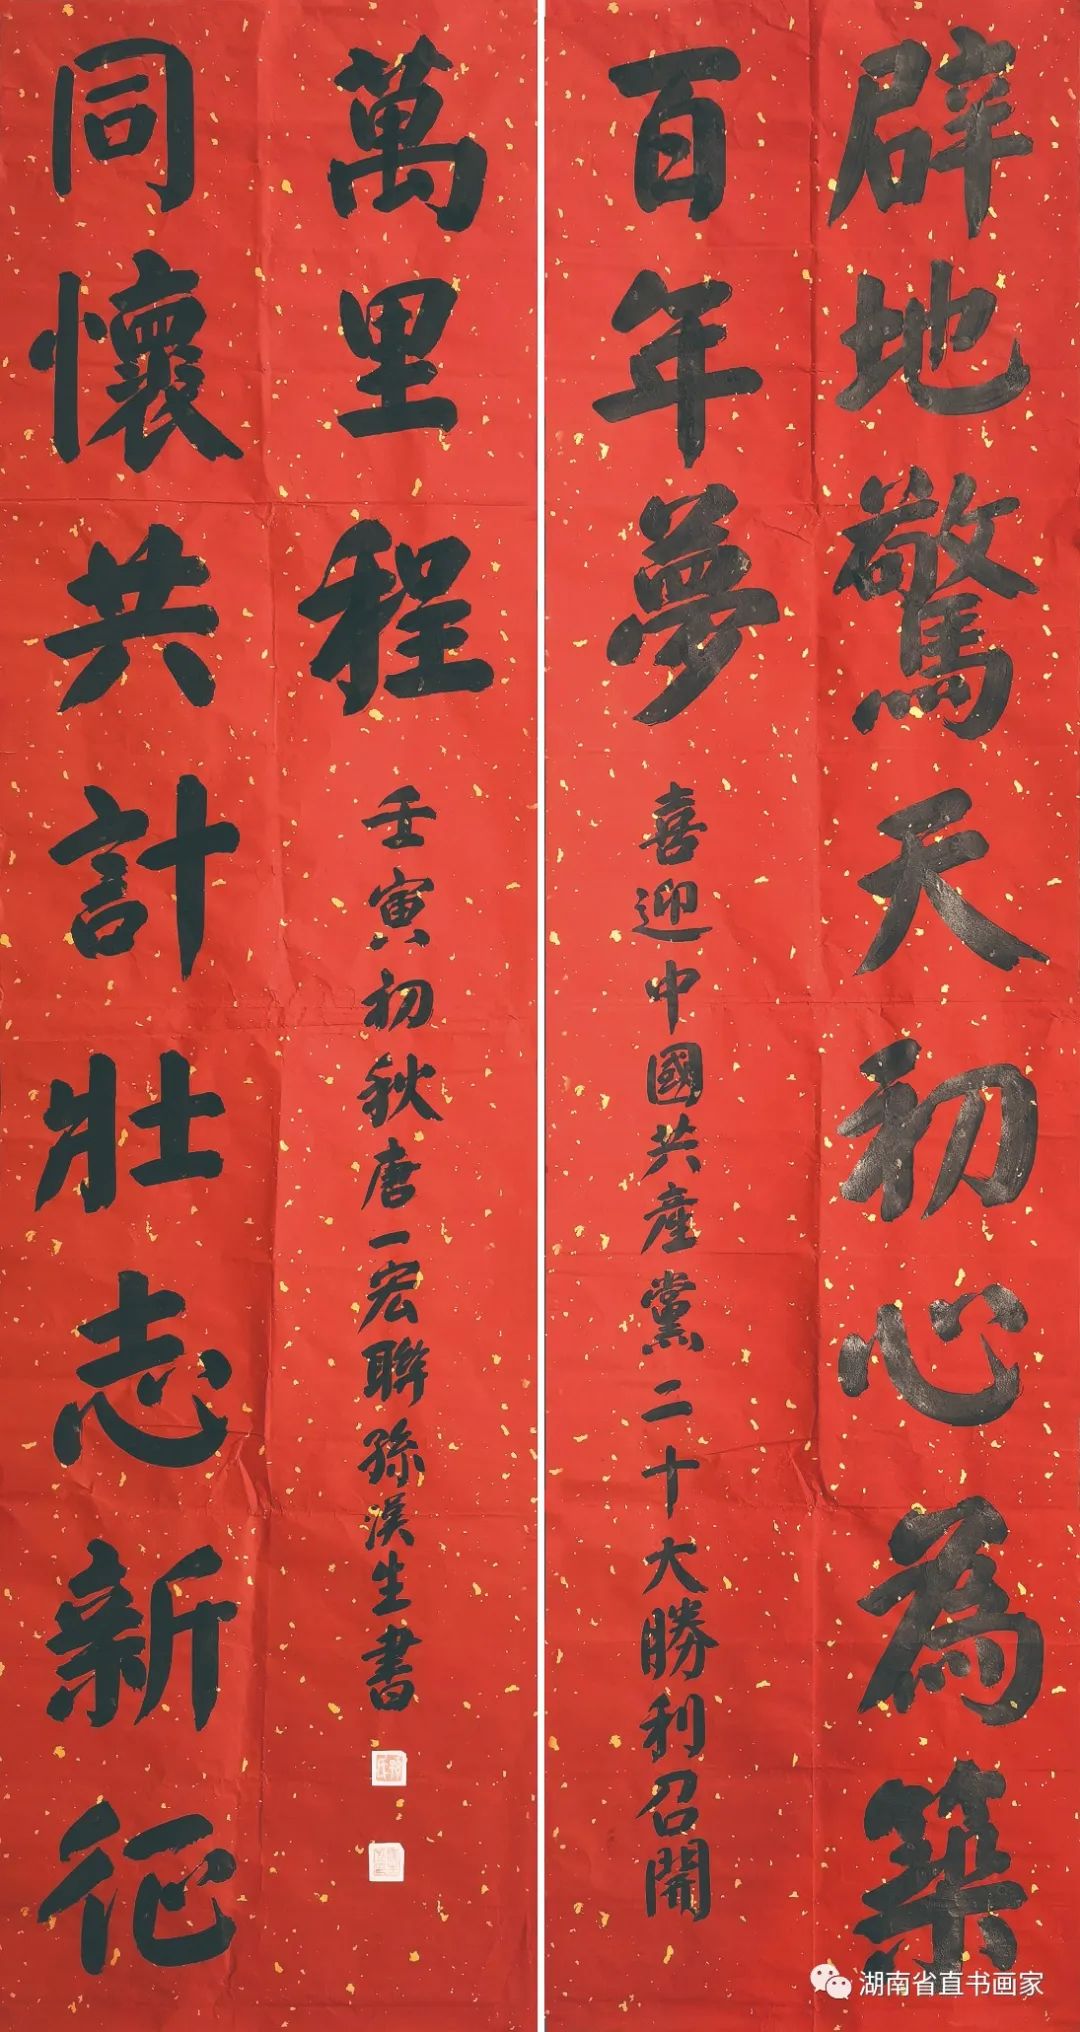 辟地驚天初心為築
百年夢
喜迎中國共產黨二十大勝利召開
同懷共計壯志新征
萬里程
壬寅初秋唐一宏聯孫漢生書
湖南省直书画家